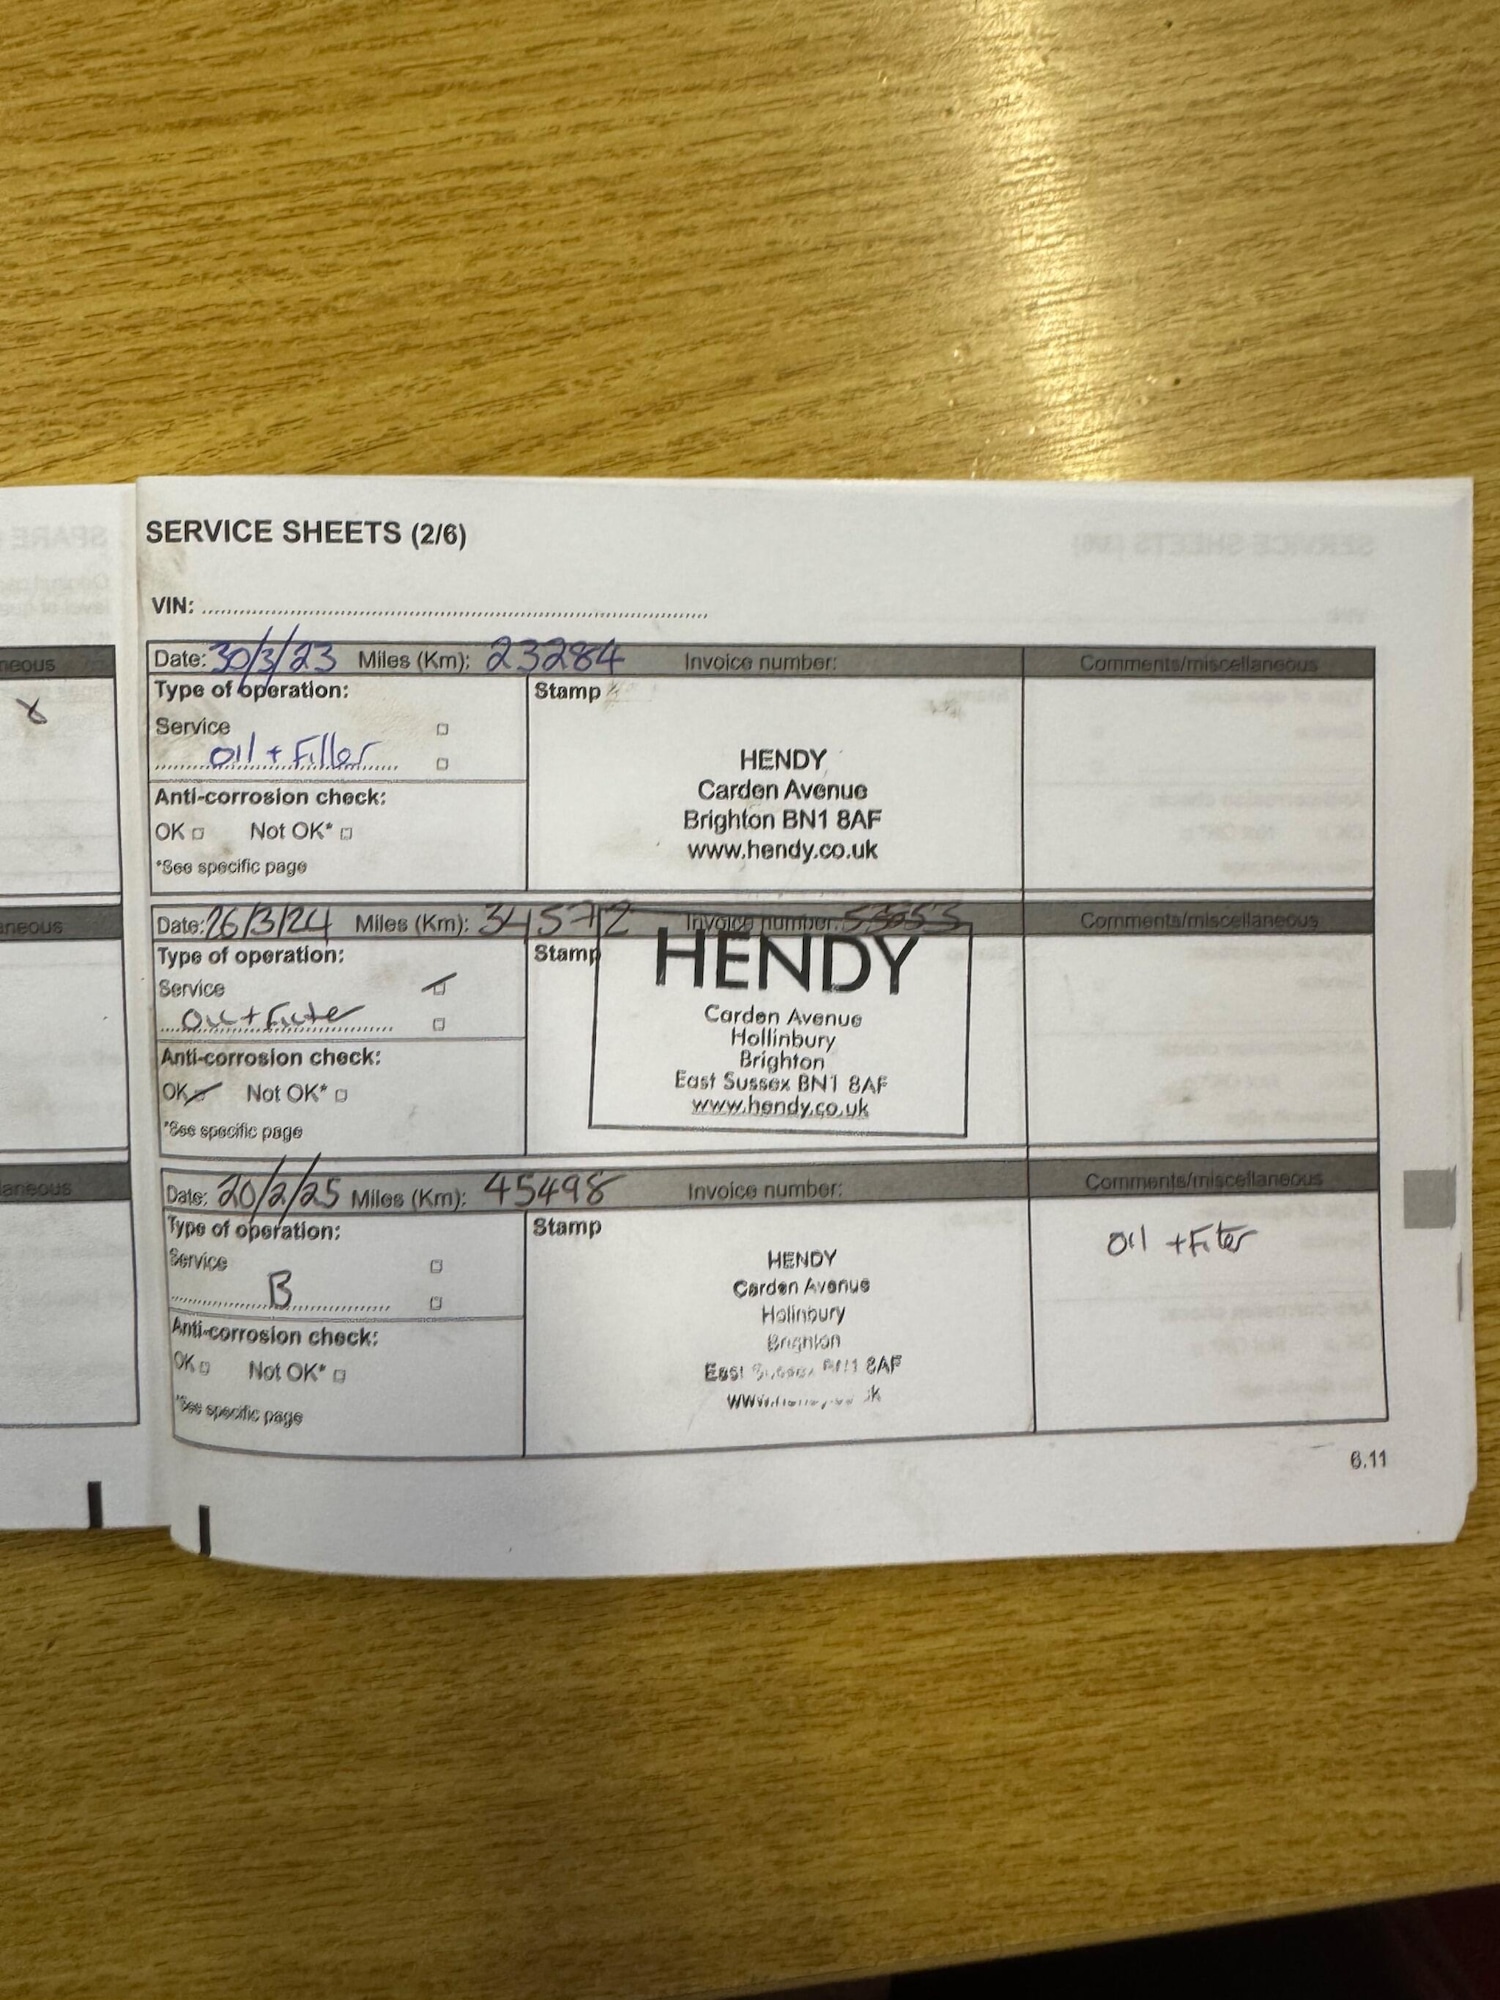 SERVICE SHEETS (2/6)
VIN:
Date: 30/3/23 Miles (Km): 23284 Invoice number: Comments/miscellaneous
Type of operation: Stamp
Service
Oil + Filter
Anti-corrosion check:
OK Not OK*
*See specific page
HENDY
Carden Avenue
Brighton BN1 8AF
www.hendy.co.uk
Date: 26/3/24 Miles (Km): 34572 Invoice number: Comments/miscellaneous
Type of operation: Stamp
Service
Oil + Filter
Anti-corrosion check:
OK Not OK*
*See specific page
HENDY
Carden Avenue
Hollinbury
Brighton
East Sussex BN1 8AF
www.hendy.co.uk
Date: 20/2/25 Miles (Km): 45498 Invoice number: Comments/miscellaneous
Type of operation: Stamp
Service
B
Anti-corrosion check:
OK Not OK*
*See specific page
HENDY
Carden Avenue
Holinbury
Brighton
East Sussex BN1 8AF
Oil + Filter
6.11